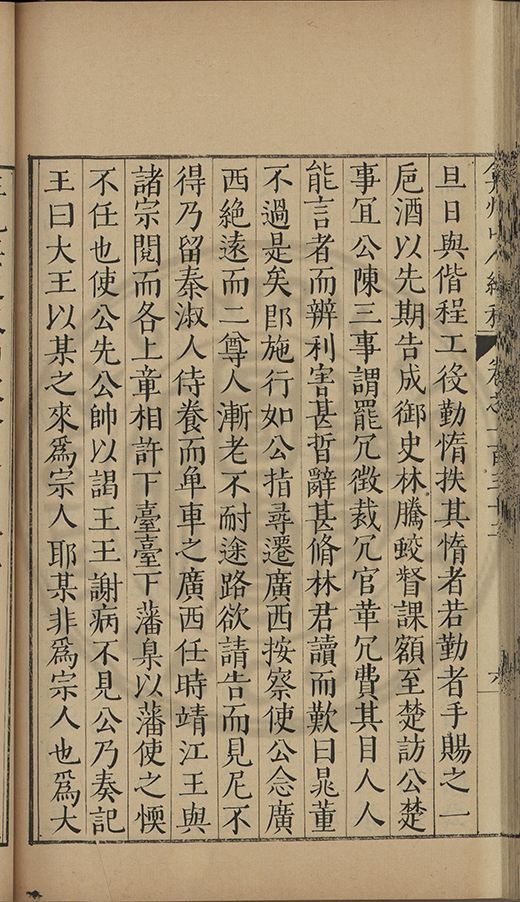 旦日與偕程工役勤惰抶其惰者若勤者手賜之一
巵酒以先期告成御史林騰蛟督課額至楚訪公楚
事冝公陳三事謂罷冗徵裁冗官革冗費其目人人
能言者而辨利害甚晢辭甚脩林君讀而歎曰晁董
不過是矣卽施行如公指尋遷廣西按察使公念廣
西絶遠而二尊人漸老不耐途路欲請告而見尼不
得乃留秦淑人侍養而単車之廣西任時靖江王與
諸宗䦧而各上章相訐下臺臺下藩臬以藩使之愞
不任也使公先公帥以謁王王謝病不見公乃奏記
王曰大王以某之來爲宗人耶某非爲宗人也爲大